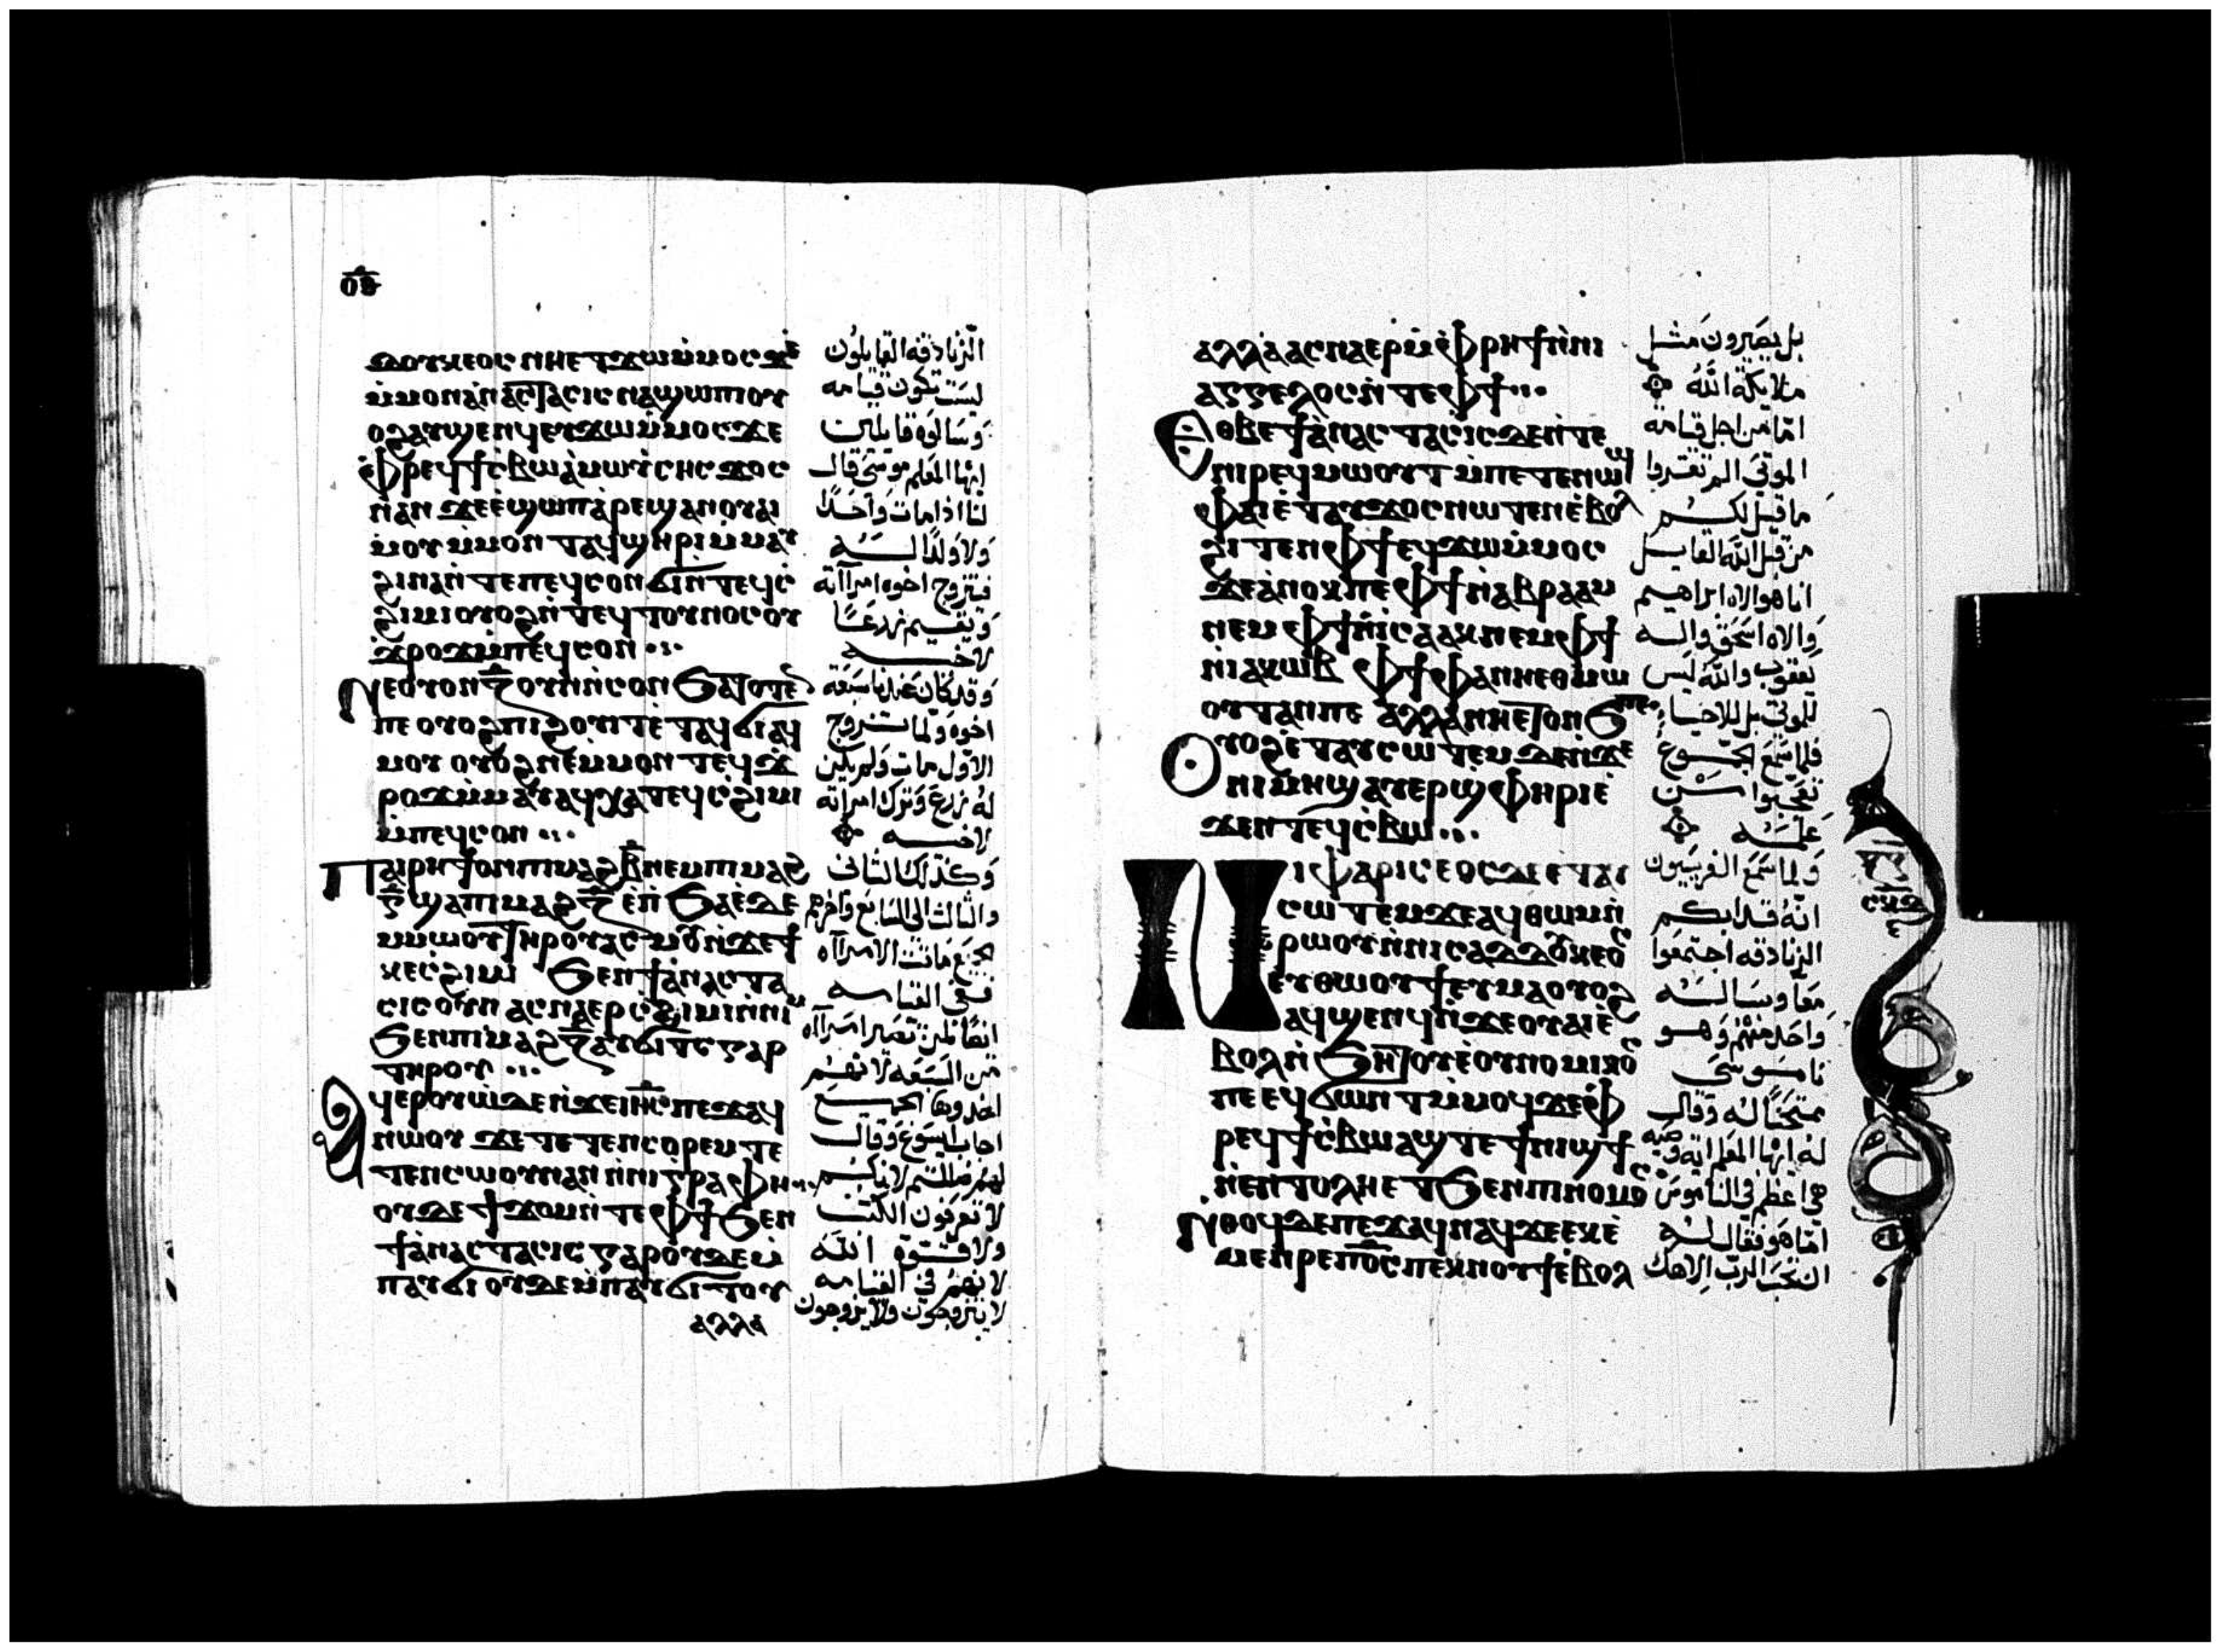 ⲇⲟⲩⲕⲉⲟⲥ ⲛⲏⲉⲧϫⲱⲙ̇ⲙⲟⲥϫⲉ
ⲙ̇ⲙⲟⲛⲁ̇ⲛⲁⲥⲧⲁⲥⲓⲥⲛⲁϣⲱⲡⲓⲟⲩ
ⲟϩⲁⲩϣⲉⲛϥⲉⲩϫⲱⲙ̇ⲙⲟⲥϫⲉ
ⲫⲣⲉϥϯⲥ̇ⲃⲱⲁ̇ⲙⲱⲩ̇ⲥⲏⲥϫⲟⲥ
ⲛⲁⲛ ϫⲉⲉ̇ϣⲱⲡⲁ̇ⲣⲉϣⲁⲛⲟⲩⲁⲓ
ⲙⲟⲩ ⲙ̇ⲙⲟⲛ ⲧⲁϥϣⲏⲣⲓⲙ̇ⲙⲁⲩ
ϩⲓⲛⲁⲛ̇ⲧⲉⲡⲉϥⲥⲟⲛϭⲓⲛ̇ⲧⲉϥⲥ̇
ϩⲓⲙⲓⲟⲩⲟϩⲛ̇ⲧⲉϥⲧⲟⲩⲛⲟⲥⲟⲩ
ϫ̇ⲣⲟϫⲙ̇ⲡⲉϥⲥⲟⲛ
ⲛⲉⲟⲩⲟⲛⲍ̅ⲟⲩⲛⲛ̇ⲥⲟⲛϧⲁⲧⲟⲧⲉⲛ
ⲡⲉ ⲟⲩⲟϩⲡⲓϩⲟⲩⲓⲧⲉ̇ⲧⲁϥϭⲓⲁϥ
ⲙⲟⲩ ⲟⲩⲟϩⲛⲉⲙ̇ⲙⲟⲛ ⲧⲉϥϫ̇
ⲣⲟϫⲙ̇ⲙⲁⲩⲁϥⲭⲁⲧⲉϥⲥ̇ϩⲓⲙⲓ
ⲙ̇ⲡⲉϥⲥⲟⲛ
ⲡⲁⲓⲣⲏϯⲟⲛⲡⲓⲙⲁϩⲃ̅ⲛⲉⲙⲡⲓⲙⲁϩ
ⲅ̅ϣⲁⲡⲓⲙⲁϩⲍ̅ ⲉ̇ⲛ̇ϧⲁⲉ̇ⲇⲉ
ⲙ̇ⲙⲱⲟⲩⲧⲏⲣⲟⲩⲁⲥⲙⲟⲩⲛ̇ϫⲉϯ
ⲕⲉⲥ̇ϩⲓⲙⲓ ϧⲉⲛϯⲁ̇ⲛⲁⲥⲧⲁ
ⲥⲓⲥⲟⲩⲛ ⲁⲥⲛⲁⲉⲣⲥ̇ϩⲓⲙⲓⲛ̇ⲛⲓⲙ
ϧⲉⲛⲡⲓⲙⲁϩⲍ̅ⲁⲩϭⲓⲧⲥⲅⲁⲣ
ⲧⲏⲣⲟⲩ
ⲁϥⲉⲣⲟⲩⲱ̇ⲇⲉⲛ̇ϫⲉⲓⲏ̅ⲥ̅ⲡⲉϫⲁϥ
ⲛⲱⲟⲩ ϫⲉ ⲧⲉⲧⲉⲛⲥⲟⲣⲉⲙⲧⲉ
ⲧⲉⲛⲥⲱⲟⲩⲛⲁⲛ ⲛ̇ⲛⲓⲅⲣⲁⲫⲏ
ⲟⲩⲇⲉ ϯϫⲟⲙⲛ̇ⲧⲉⲫϯϧⲉⲛ
ϯⲁ̇ⲛⲁⲥⲧⲁⲥⲓⲥ ⲅⲁⲣⲟⲩⲇⲉⲙ̇
ⲡⲁⲩϭⲓ ⲟⲩⲇⲉⲙ̇ⲡⲁⲩϭⲓⲧⲟⲩ
ⲁⲗⲗⲁ
الزنادقه القايلون
ليست تكون قيامه
وسالوه قايلين
ايها المعلم موسى قال
لنا اذا مات واحدًا
ولا ولدًا لـــه
فيتزوج اخوه امراته
ويقيم زرعًا
لاخـيـه
وقد كان عندنا سبعه
اخوه ولما تزوج
الاول مات ولم يكن
له زرع وترك امراته
لاخـيـه
وكذلك الثانى
والثالث الى السابع واخرهم
جميع ماتت الامراه
ففى القيامه
ايضًا لمن تصير امراه
من السبعه لانهم
اخدوها الجميـع
اجاب ايسوع وقال
لهم ضللتم لانكـم
لا تعرفون الكتب
ولا قـوة الله
لانهم فى القيامه
لا يتزوجون ولا يزوجون
ⲁⲗⲗⲁⲁⲥⲛⲁⲉⲣⲙ̇ⲫⲣⲏϯⲛ̇ⲛⲓ
ⲁⲅⲅⲉⲗⲟⲥⲛ̇ⲧⲉⲫϯ
ⲉⲑⲃⲉϯⲁ̇ⲛⲁⲥⲧⲁⲥⲓⲥⲇⲉⲛ̇ⲧⲉ
ⲛⲓⲣⲉϥⲙⲱⲟⲩⲧ ⲙ̇ⲡⲉⲧⲉⲛⲱϣ
ⲫⲁⲓⲉ̇ⲧⲁⲩϫⲟⲥⲛⲱⲧⲉⲛⲉ̇ⲃⲟⲗ
ϩⲓⲧⲉⲛⲫϯⲉϥϫⲱⲙ̇ⲙⲟⲥ
ϫⲉⲁ̇ⲛⲟⲕⲡⲉⲫϯⲛ̇ⲁⲃⲣⲁⲁⲙ
ⲛⲉⲙⲫϯⲛ̇ⲓⲥⲁⲁⲕⲛⲉⲙⲫϯ
ⲛ̇ⲓⲁⲕⲱⲃ ⲫϯⲫⲁⲛⲏⲉⲑⲙⲱ
ⲟⲩⲧⲁⲛⲡⲉ ⲁⲗⲗⲁⲛⲏⲉⲧⲟⲛϧⲡⲉ
ⲟⲩⲟϩⲉ̇ⲧⲁⲩⲥⲱⲧⲉⲙ ⲇⲉⲛ̇ϫⲉ
ⲛⲓⲙⲏϣⲁⲩⲉⲣϣ̇ⲫⲏⲣⲓⲉ̇
ϫⲉⲛⲧⲉϥⲥ̇ⲃⲱ
ⲛⲓⲫⲁⲣⲓⲥⲉⲟⲥⲇⲉⲉ̇ⲧⲁⲩ
ⲥⲱⲧⲉⲙϫⲉⲁϥⲑⲱⲙⲛ̇
ⲣⲱⲟⲩⲛ̇ⲛⲓⲥⲁⲇⲇⲟⲩⲕⲉⲟⲥ
ⲉⲩⲑⲱⲟⲩϯⲉⲩⲙⲁⲟⲩⲟϩ
ⲁϥϣⲉⲛϥⲛ̇ϫⲉⲟⲩⲁⲓⲉ̇
ⲃⲟⲗⲛ̇ϧⲏⲧⲟⲩⲉ̇ⲟⲩⲛⲟⲙⲓⲕⲟⲥ
ⲡⲉⲉϥϭⲱⲛⲧⲙ̇ⲙⲟϥϫⲉⲫ
ⲣⲉϥϯⲥ̇ⲃⲱⲁϣⲧⲉϯⲛⲓϣϯ
ⲛ̇ⲉⲛⲧⲟⲗⲏⲉⲧϧⲉⲛⲡⲓⲛⲟⲙⲟⲥ
ⲛⲑⲟϥⲇⲉⲡⲉϫⲁϥⲛⲁϥϫⲉⲉⲕⲉ̇
ⲙⲉⲛⲣⲉⲡⲟ̅ⲥ̅ⲡⲉⲕⲛⲟⲩϯⲉ̇ⲃⲟⲗ
بل يصيرون مثـل
ملايكة الله
امّا من اجل قيامة
الموتى الم تقروا
ما قيـل لكـم
من قبل الله القايـل
انا هو الاه ابراهيم
والاه اسحق والـه
يعقوب والله ليس
للموتى بل للاحيـا
فلما سمع الجمـوع
تعجبوا مـن
علمـه
ولما سمع الفريسيون
انّه قد ابكم
الزنادقه اجتمعوا
معًا وساله
واحد منهم وهـو
ناموسى
ممتحنًا له وقال
له ايها المعلم اية وصيه
هى اعظم فى الناموس
امّا هو فقال لـه
ان تحب الرب الاهك